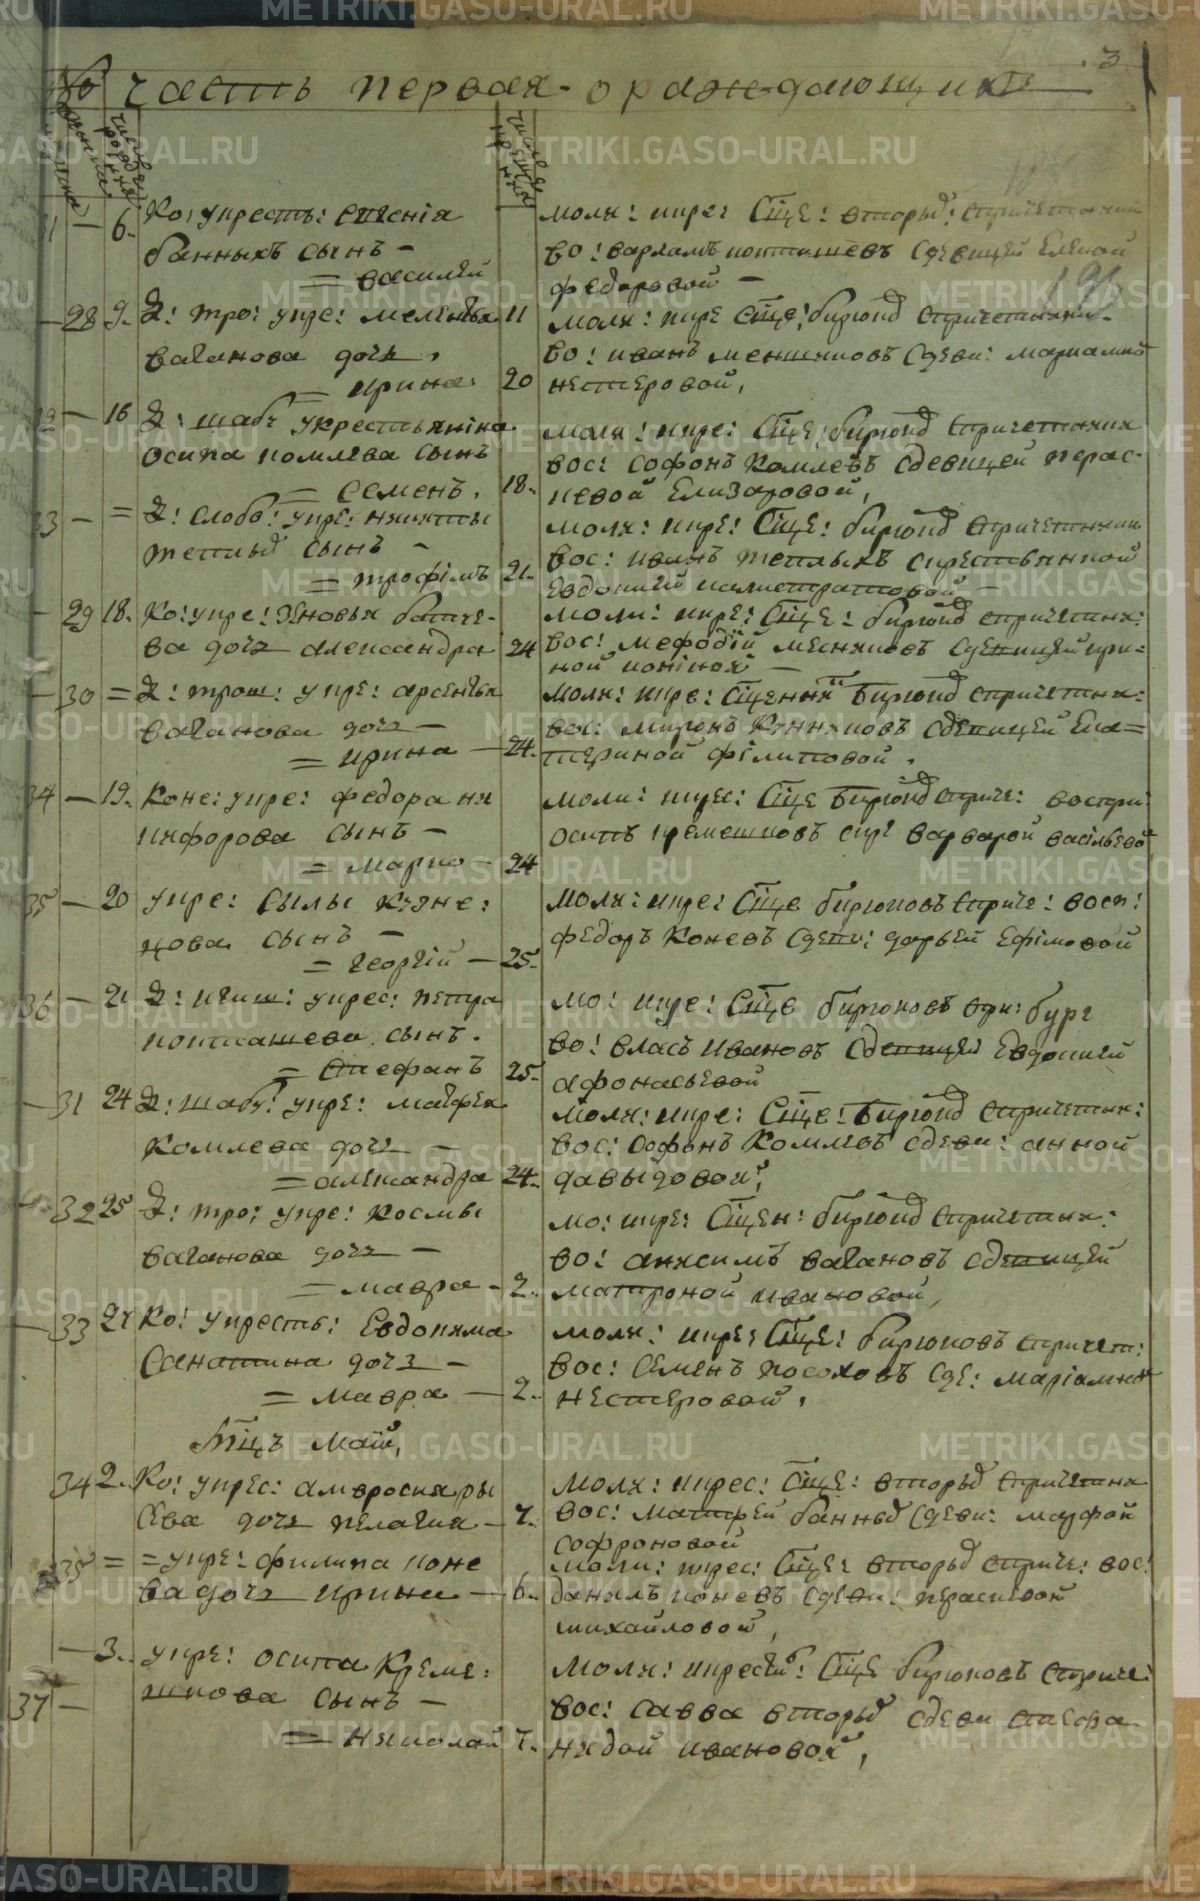 часть первая о раждающихся
3
Число рожде ния
Число креще ния
6. Ко: укресть: евгенiя
банныхъ сынъ –
= василей
молн: икре: Сще: вторыд: спричетники
во: варламъ поташевъ Сдевицей Еленой
федоровой –
28 9. Д: тро: укре: мелентья 11
ваганова дочь,
= ирина: 20
молн: икре Сще: бирюид спричетники
во: иванъ меншиковъ Сдеви: мариамной
нестеровой,
16 Д: шабу укрестьянiна
осипа комлева сынъ
= Семенъ, 18.
молн: икре: Сще: бирюид спричетники
вос: софонъ Комлевъ Сдевицей перас-
кевой Елизаровой,
33 – = Д: слобо: укре: никиты
теплыд сынъ –
= трофiмъ 21.
молн: икре: Сще: бирюид спричетники
вос: иванъ теплыхъ скрестьянкой
Евдокией калистратовой –
29 18. Ко: укре: Зѣновья батуе-
ва дочь александра 24
моли: икре: Сще: бирюид спричетник:
вос: мефодiй месниковъ Сдевицей ири-
ной конiной –
30 = Д: трош: укре: арсентья
ваганова дочь –
= ирина – 24.
молн: икре: Сщенник бирюид спричетник:
вос: миронъ Конниковъ Сдевицей Ека=
териной филиповой.
34 – 19. Коне: укре: федора ни
кифорова сынъ –
= марко – 24
моли: икрес: Сще бирюид сприче: воспри:
осипъ кремешковъ скр: варварой васiльевой
35 – 20 укре: Силы Кузне:
цова сынъ –
= георгiй – 25.
молн: икре: Сще бирюковъ сприче: восп:
федоръ Коневъ Сдеви: дарьей ефiмовой
36 – 21 Д: кгиш: укрес: петра
поташева сынъ.
= Стефанъ 25.
мо: икре: Сще бирюковъ при: бург
во: власъ ивановъ Сдевицей Евдокией
афонасьевой
31 24 Д: шабу: укре: матфея
Комлева дочь –
= александра 24.
молн: икре: Сще: бирюид спричетник:
вос: Софонъ Комлевъ сдеви: анной
давыдовой,
32 25 Д: тро: укре: космы
ваганова дочь –
= мавра – 2.
мо: икре: Сщен: бирюид спричетник:
во: анисимъ вагановъ Сдевицей
матроной ивановой,
33 27 Ко: укресть: Евдокима
Санатина дочь –
= мавра – 2.
молн: икре: Сще: бирюковъ спричет:
вос: Семенъ посоховъ Сде: марiамной
нестеровой,
Мцъ май,
34 2. Ко: укрес: амвросия ры
Сева дочь пелагия – 7.
молн: икрес: Сще: вторыд спричетник
вос: матфей банныд Сдеви: марфой
софроновой
35 = = укре: филипа коне
ва дочь ирина – 6.
моли: икрес: Сще: вторыд сприче: вос:
данилъ коневъ Сдеви: пераскевой
михайловой,
37 – 3. укре: осипа Кремe:
шкова сынъ –
= николай 7.
молн: икресьй: Сще бирюковъ сприче:
вос: савва вторыд сдеви стефа
нидой ивановой,